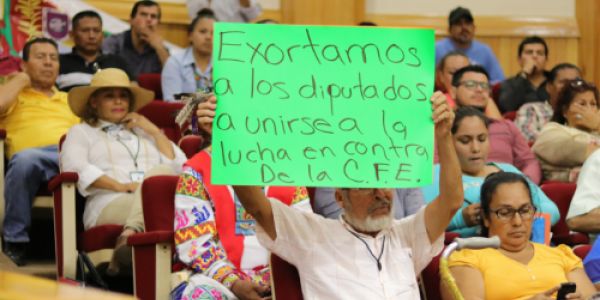 Exortamos
a los diputados
a unirse a la
lucha en contra
De la C.F.E.